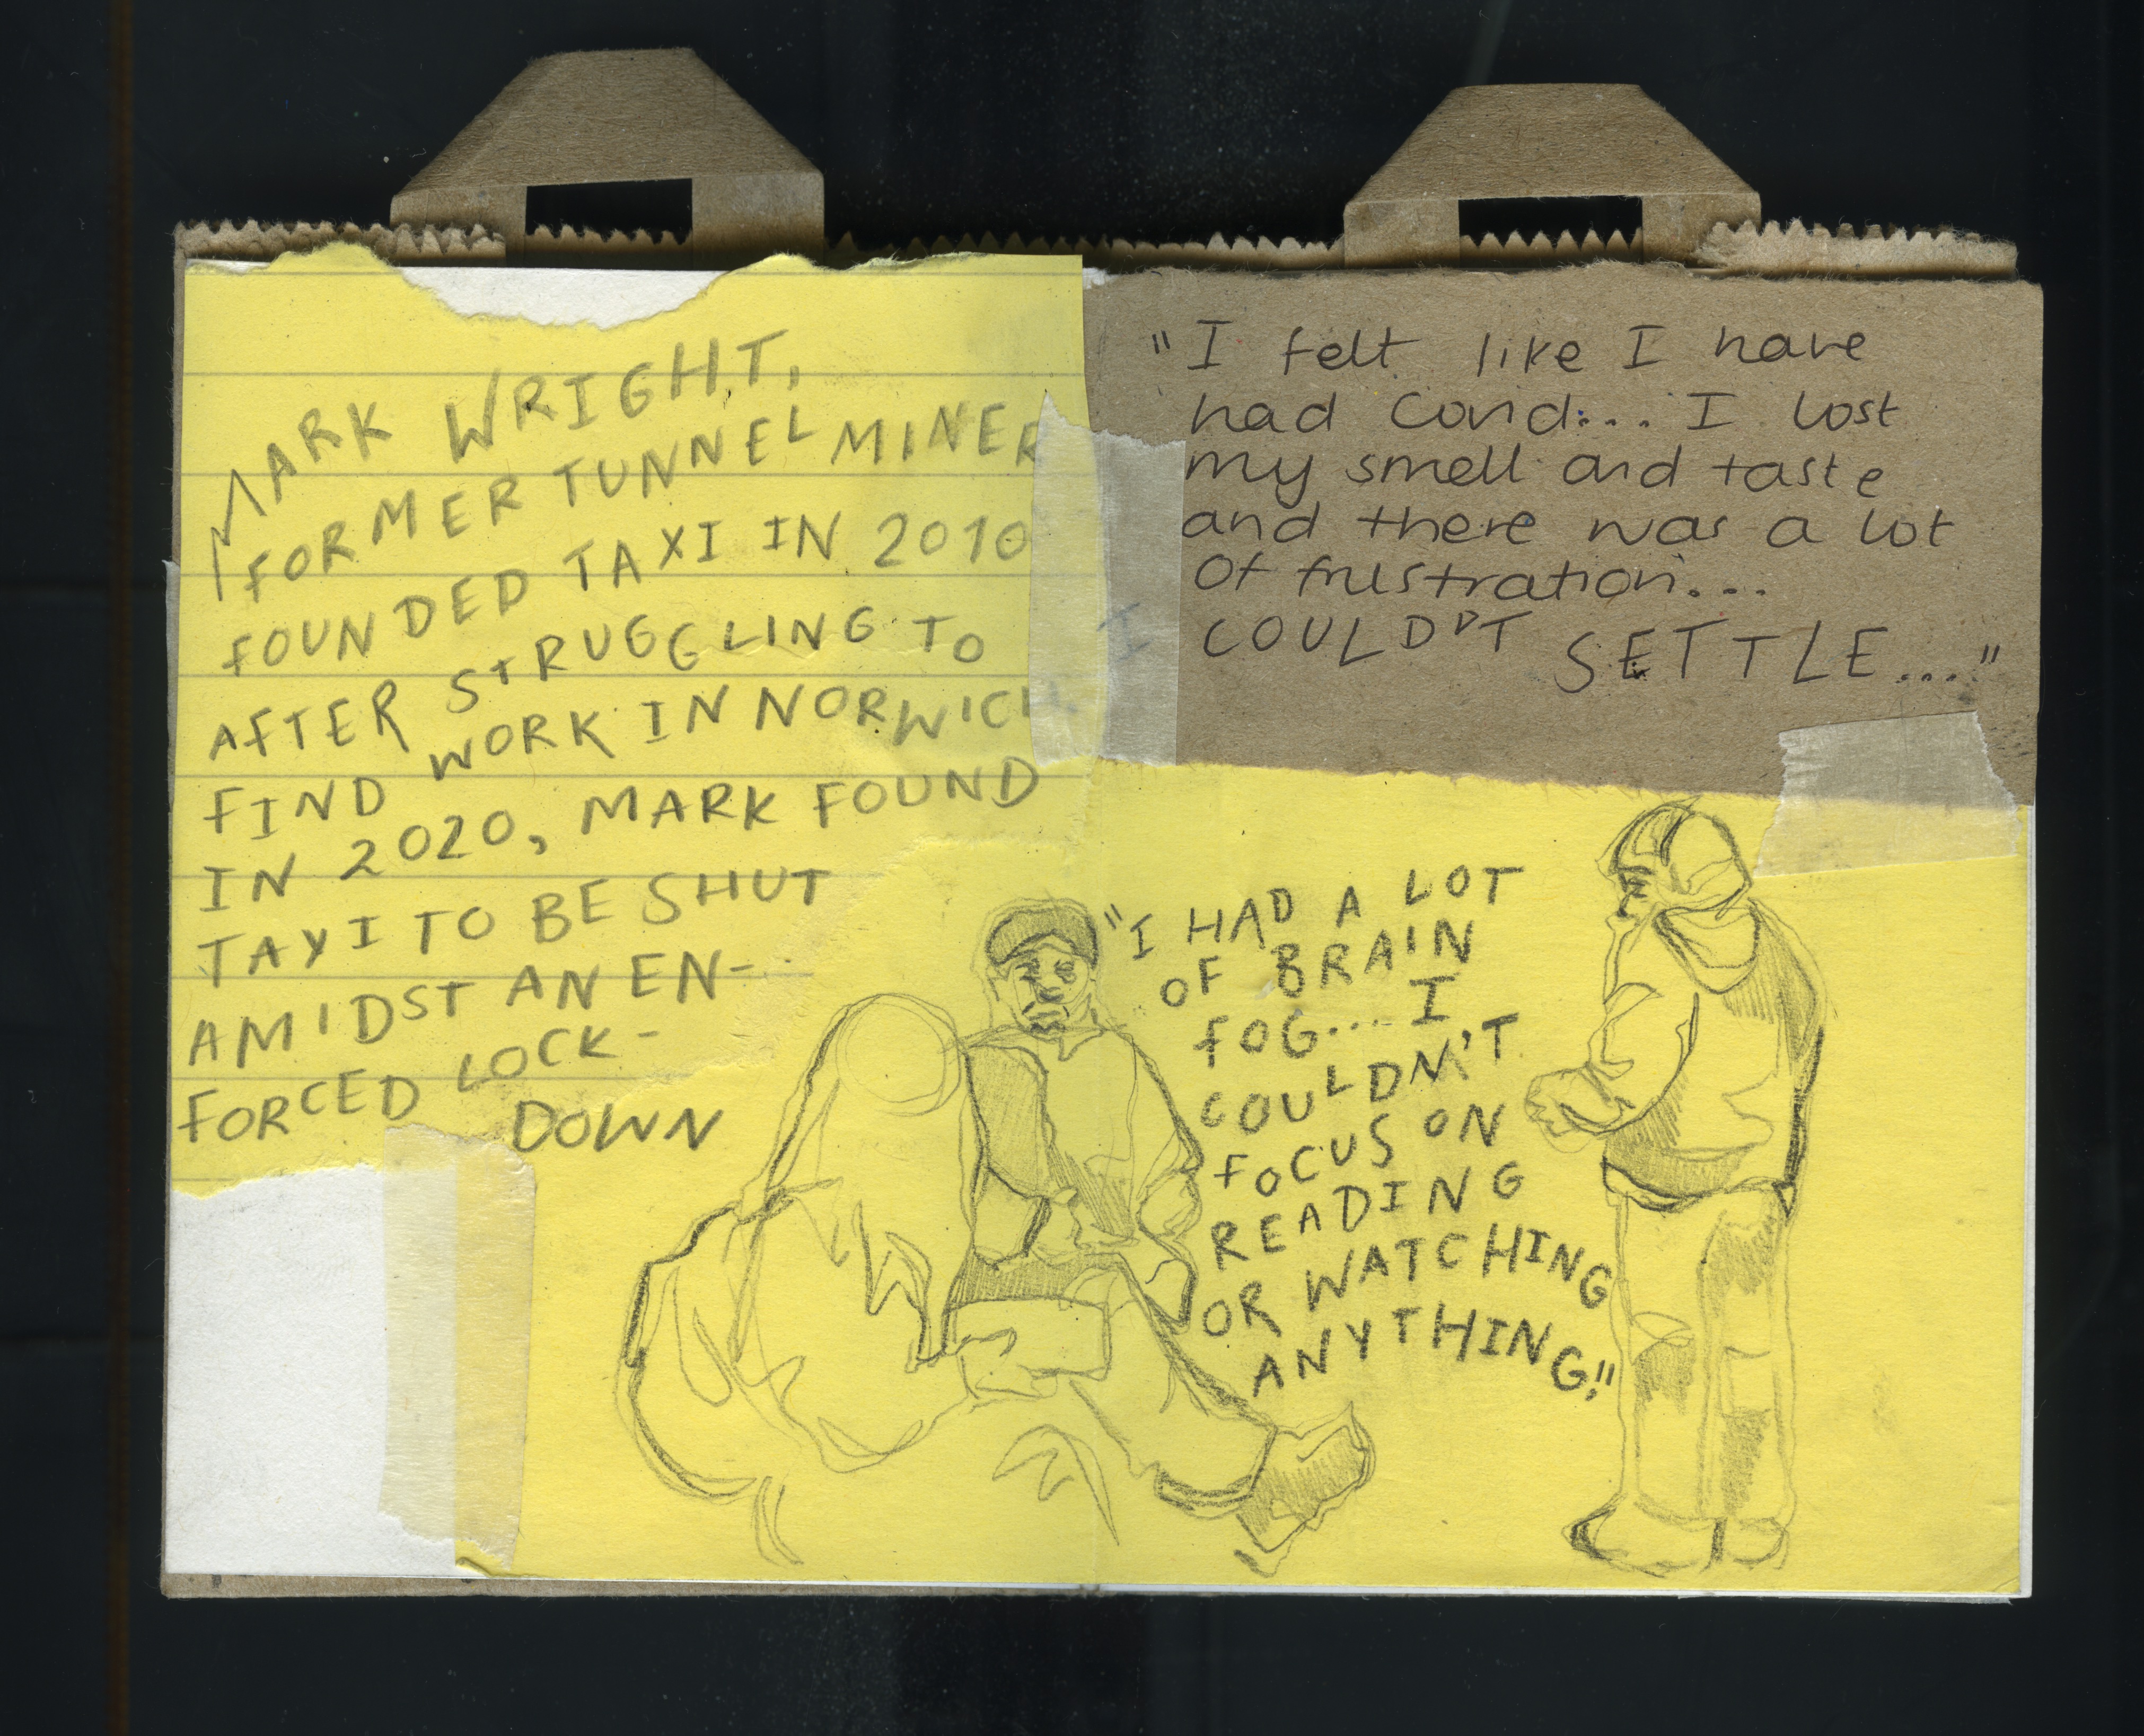 MARK WRIGHT,
FORMER TUNNEL MINER
FOUNDED TAXI IN 2010
AFTER STRUGGLING TO
FIND WORK IN NORWICH
IN 2020, MARK FOUND
TAXI TO BE SHUT
AMIDST AN EN-
FORCED LOCK-
DOWN
"I felt like I have
had Covid... I lost
my smell and taste
and there was a lot
of frustration...
COULDN'T SETTLE..."
"I HAD A LOT
OF BRAIN
FOG.... I
COULDN'T
FOCUS ON
READING
OR WATCHING
ANYTHING!"